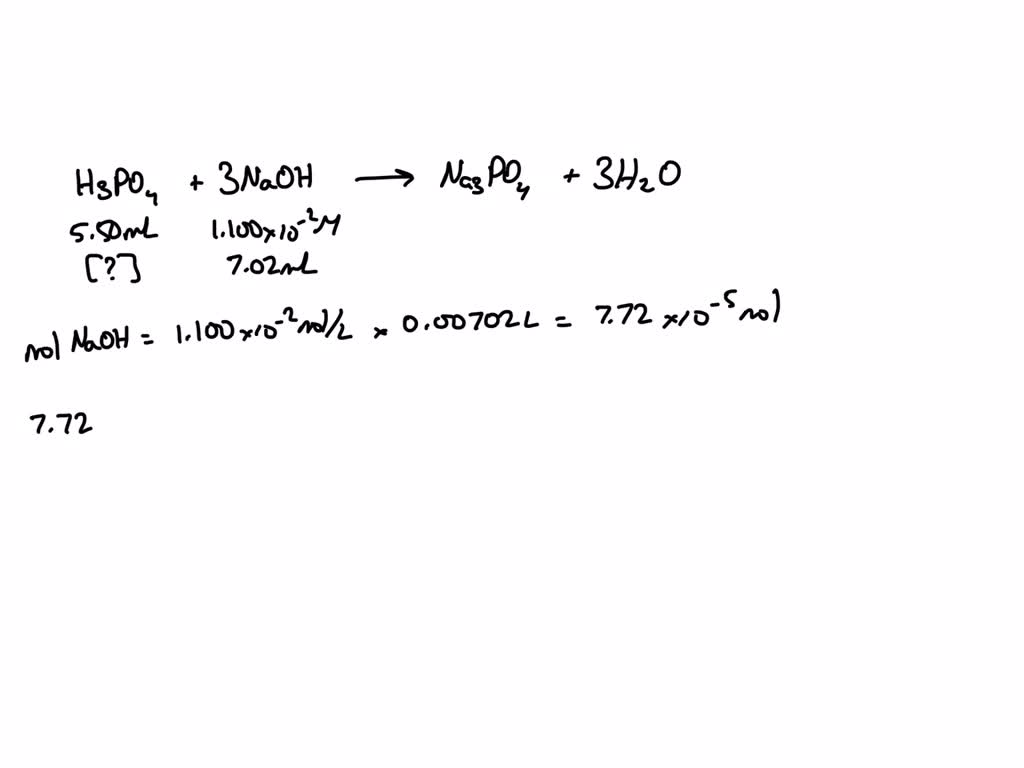 H₃PO₄ + 3NaOH → Na₃PO₄ + 3H₂O
5.50mL 1.100×10⁻²M
[?] 7.02mL
mol NaOH = 1.100×10⁻² mol/L × 0.00702L = 7.72×10⁻⁵ mol
7.72